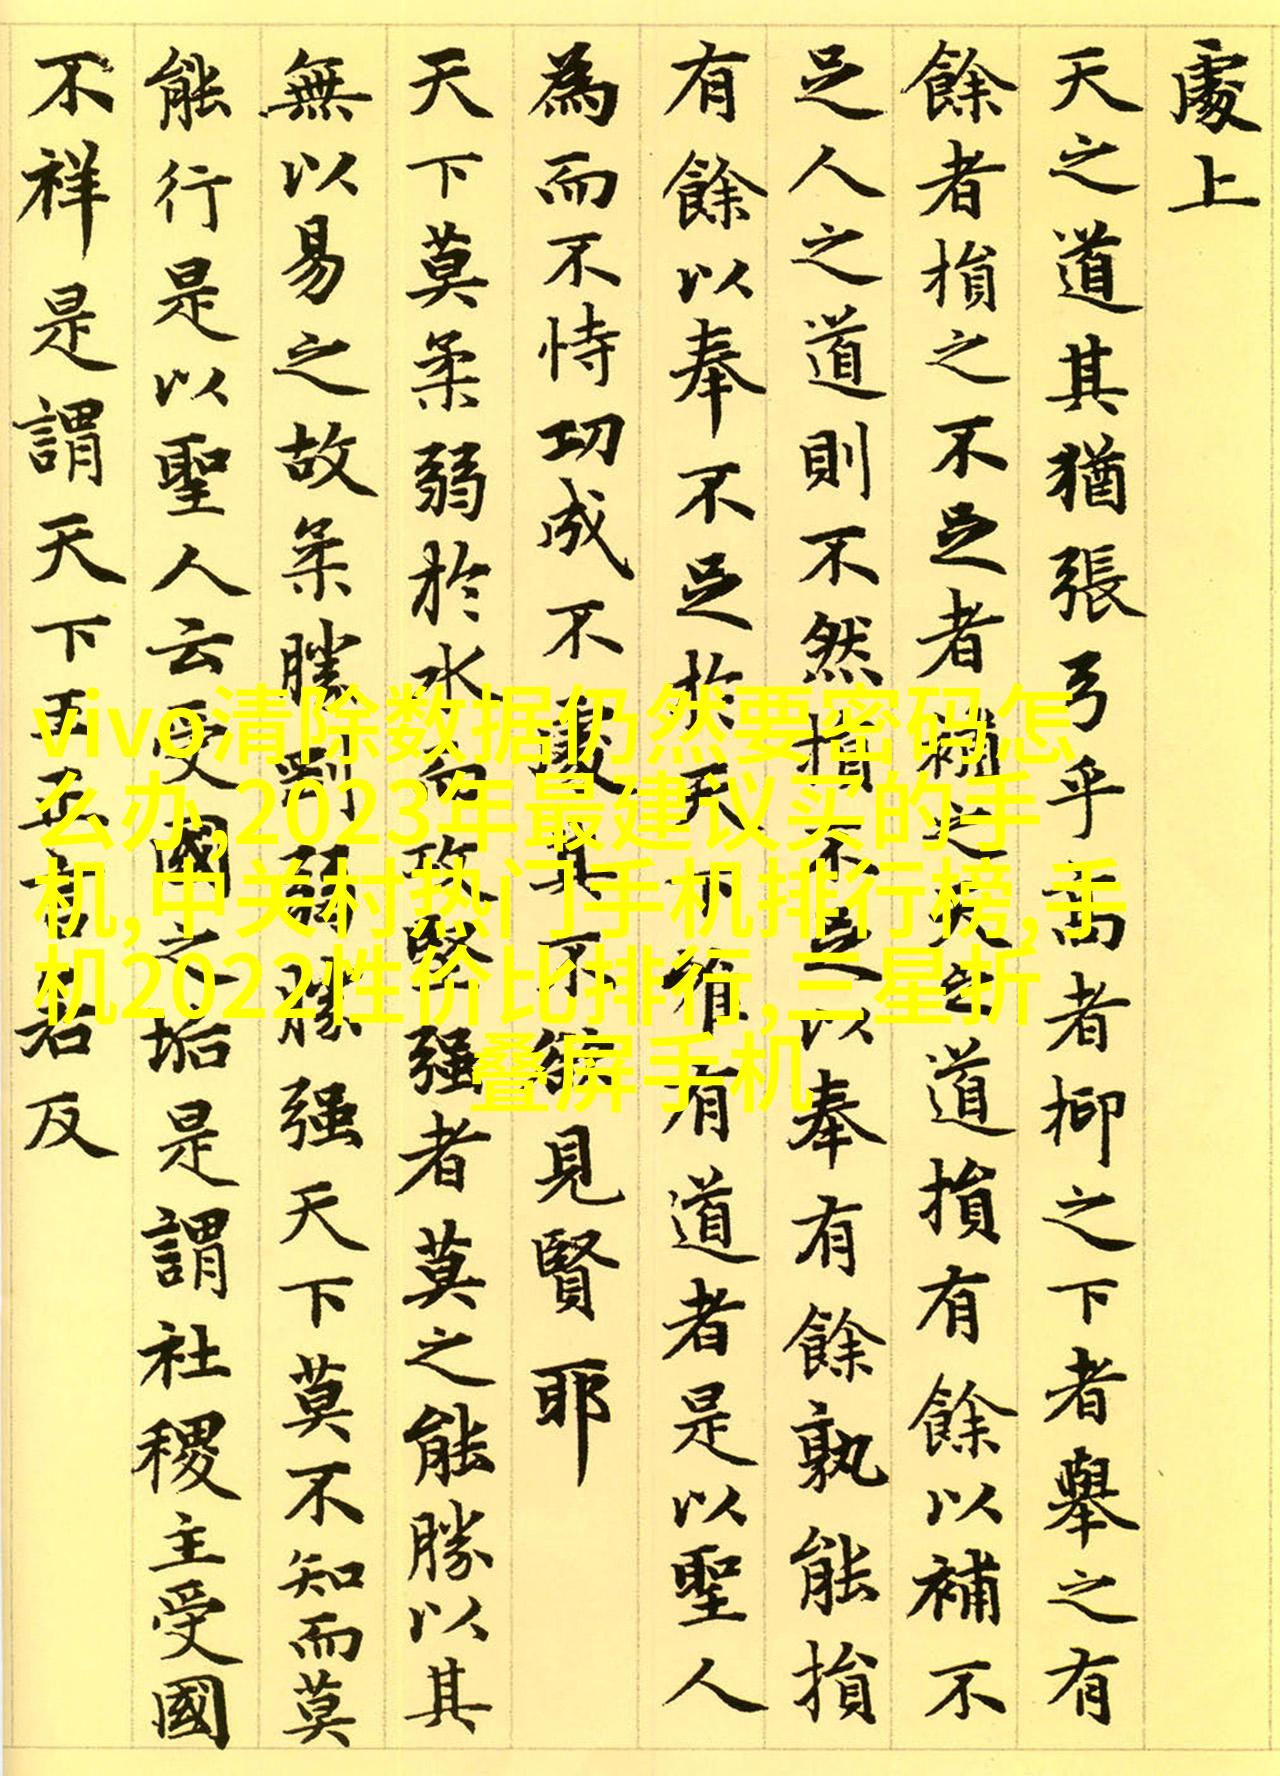 處上
天之道其猶張弓乎高者抑之下者舉之有
餘者損之不足者補之天之道損有餘以補不
足人之道則不然損不足以奉有餘孰能損
有餘以奉不足於天下唯有道者是以聖人
為而不恃功成不處其不欲見賢耶
天下莫柔弱於水而攻堅强者莫之能勝以其
無以易之故柔勝剛弱勝强天下莫不知而莫
能行是以聖人云受國之垢是謂社稷主受國
不祥是謂天下王正言若反
vivo清除数据仍然要密码怎
么办,2023年最建议买的手
机,中关村热门手机排行榜,手
机2022性价比排行,三星折
叠屏手机